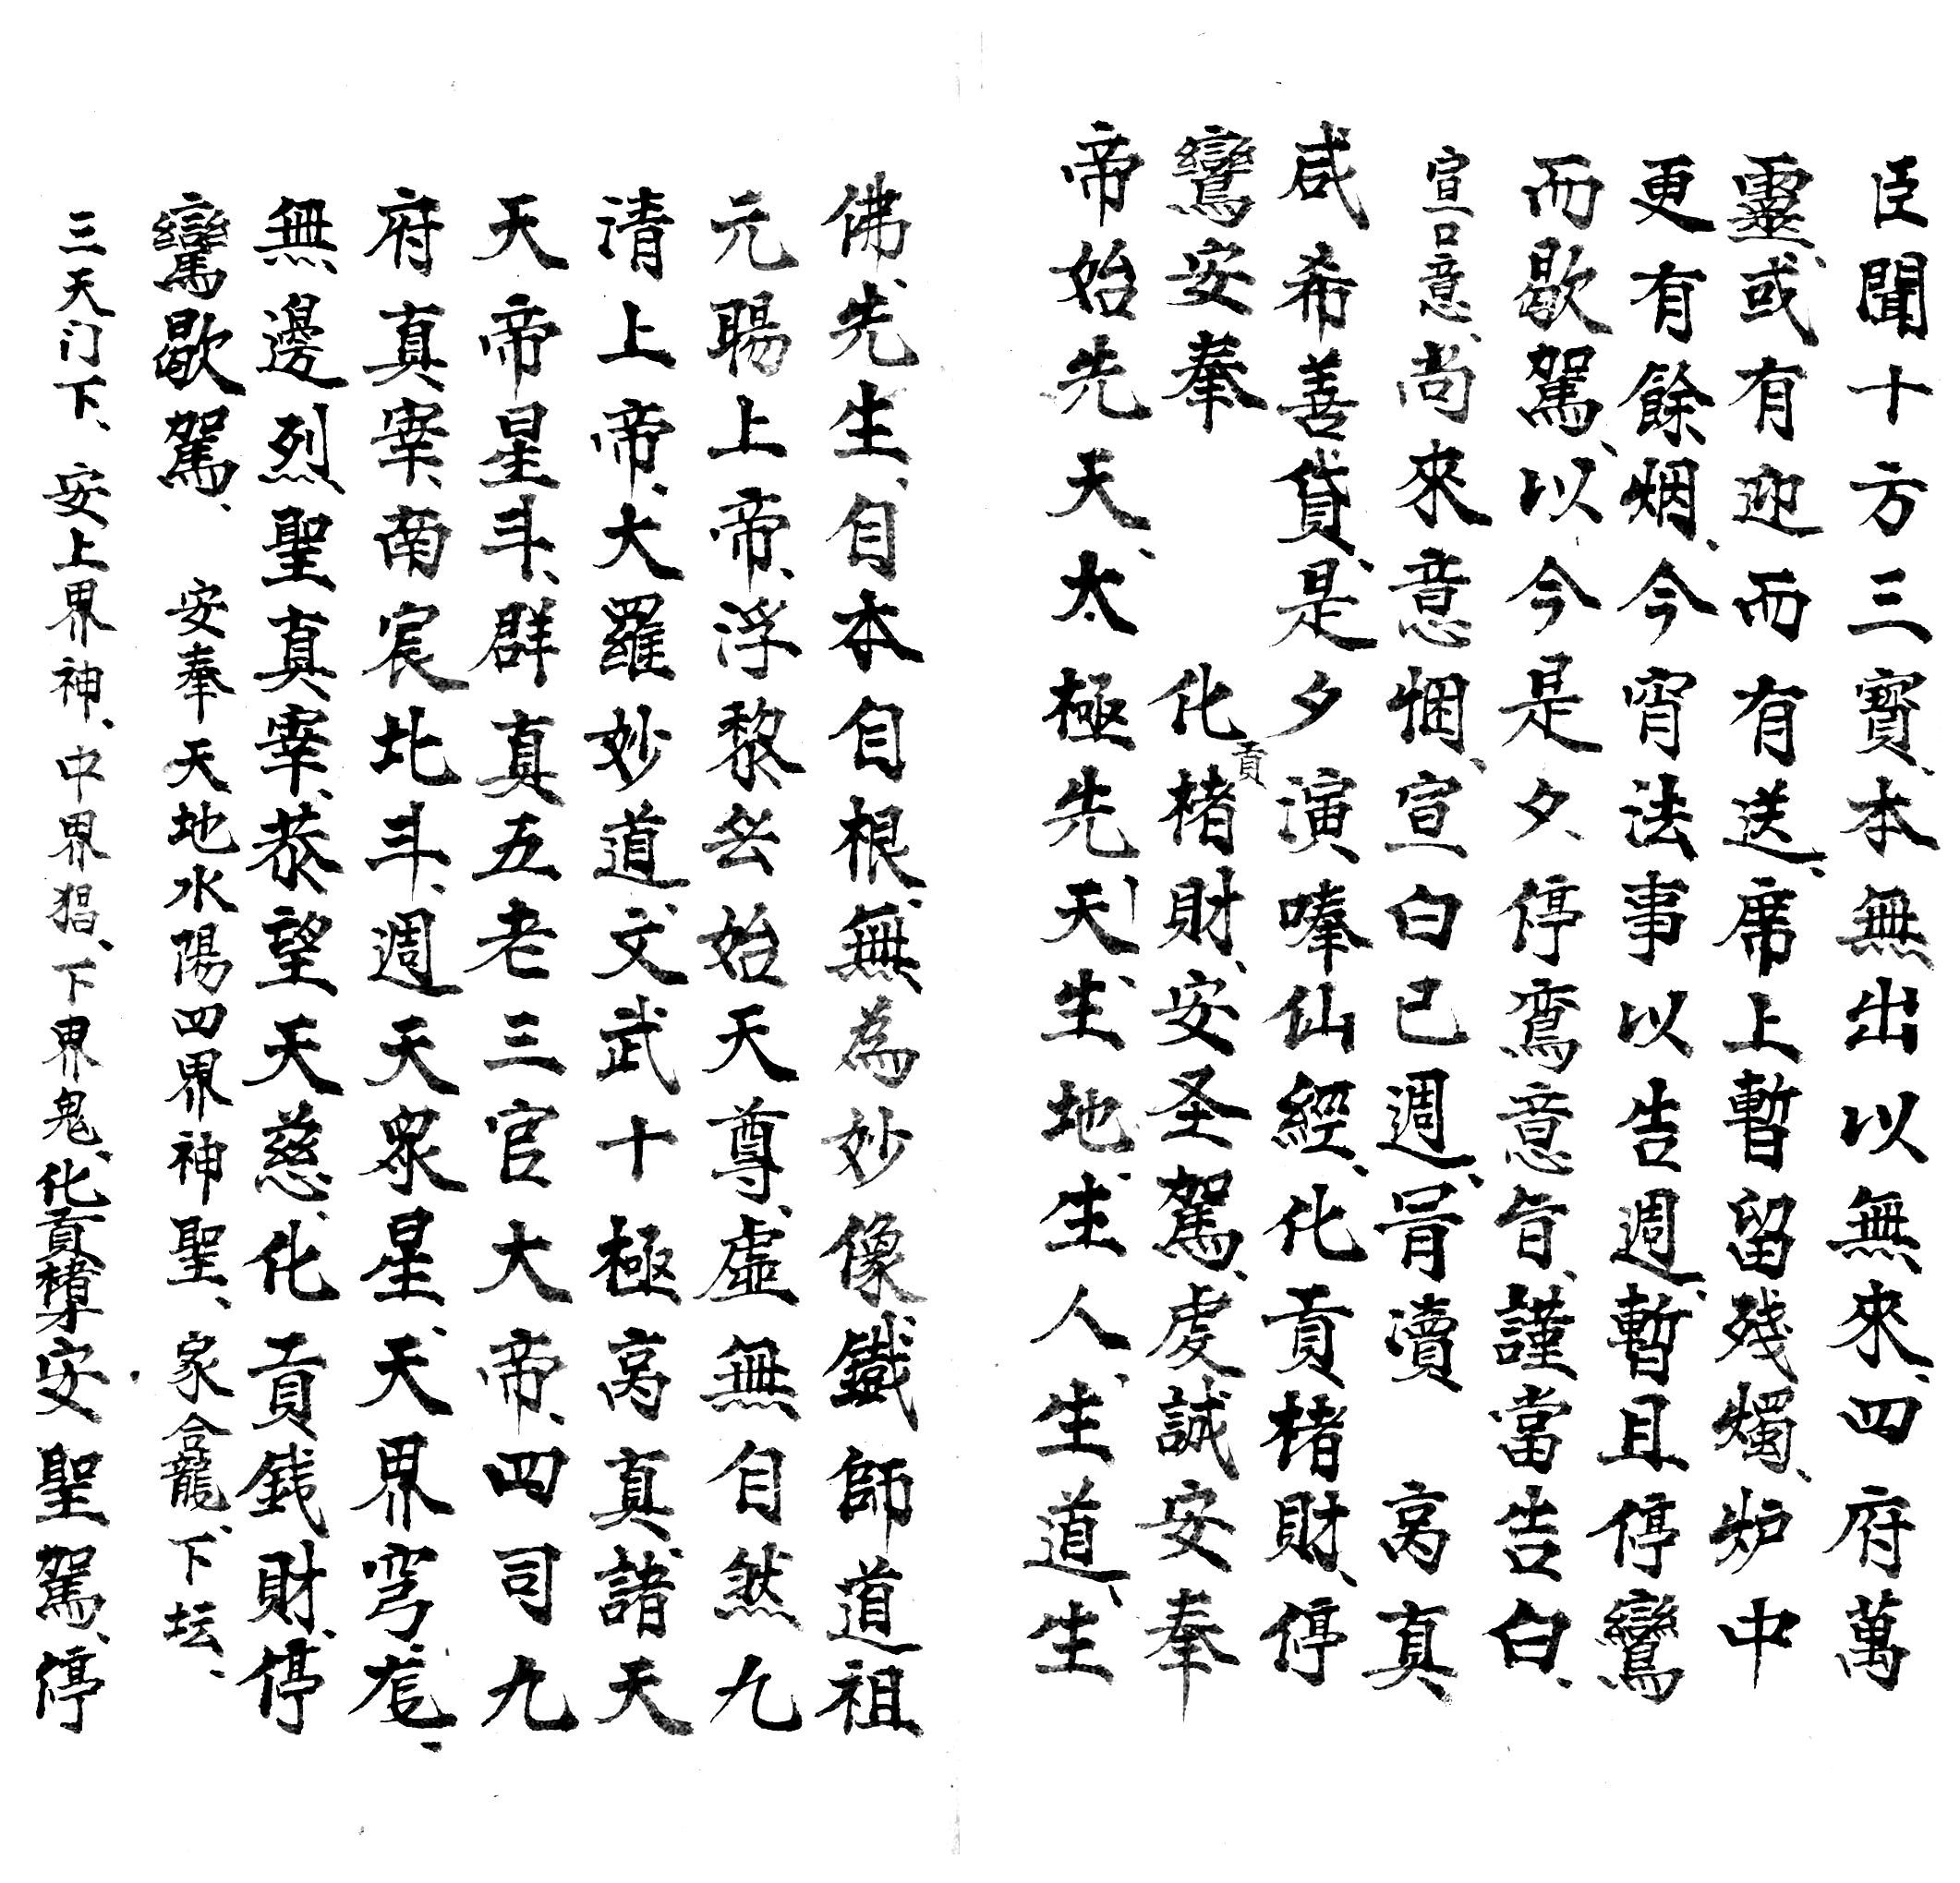 臣聞十方三寶、本無出以無來、四府萬
靈、或有迎而有送、席上暫留殘燭、炉中
更有餘烟、今宵法事以告週、暫且停鸞
而歇駕、以今是夕、停鸞意旨、謹當告白、
宣口意、尚來意悃、宣白已週、冐瀆 高真
咸希善貸、是夕演唪仙經、化貢楮財、停
鸞安奉 化貢楮財、安圣駕、虔誠安奉
帝始先天、太極先天、生地、生人、生道、生
佛、先生、自本自根、無為妙像、鐵師道祖
元陽上帝、浮黎玄始天尊、虛無自然九
清上帝、大羅妙道、文武十極高真、諸天
天帝星斗、群真五老三官大帝、四司九
府真宰、南宸北斗、週天衆星、天界穹窿、
無邊烈聖真宰、恭望天慈、化貢銭財、停
鸞歇駕、 安奉天地水陽四界神聖、家合龕、下坛、
三天门下、安上界神、中界猖、下界鬼、化貢楮財安聖駕、停